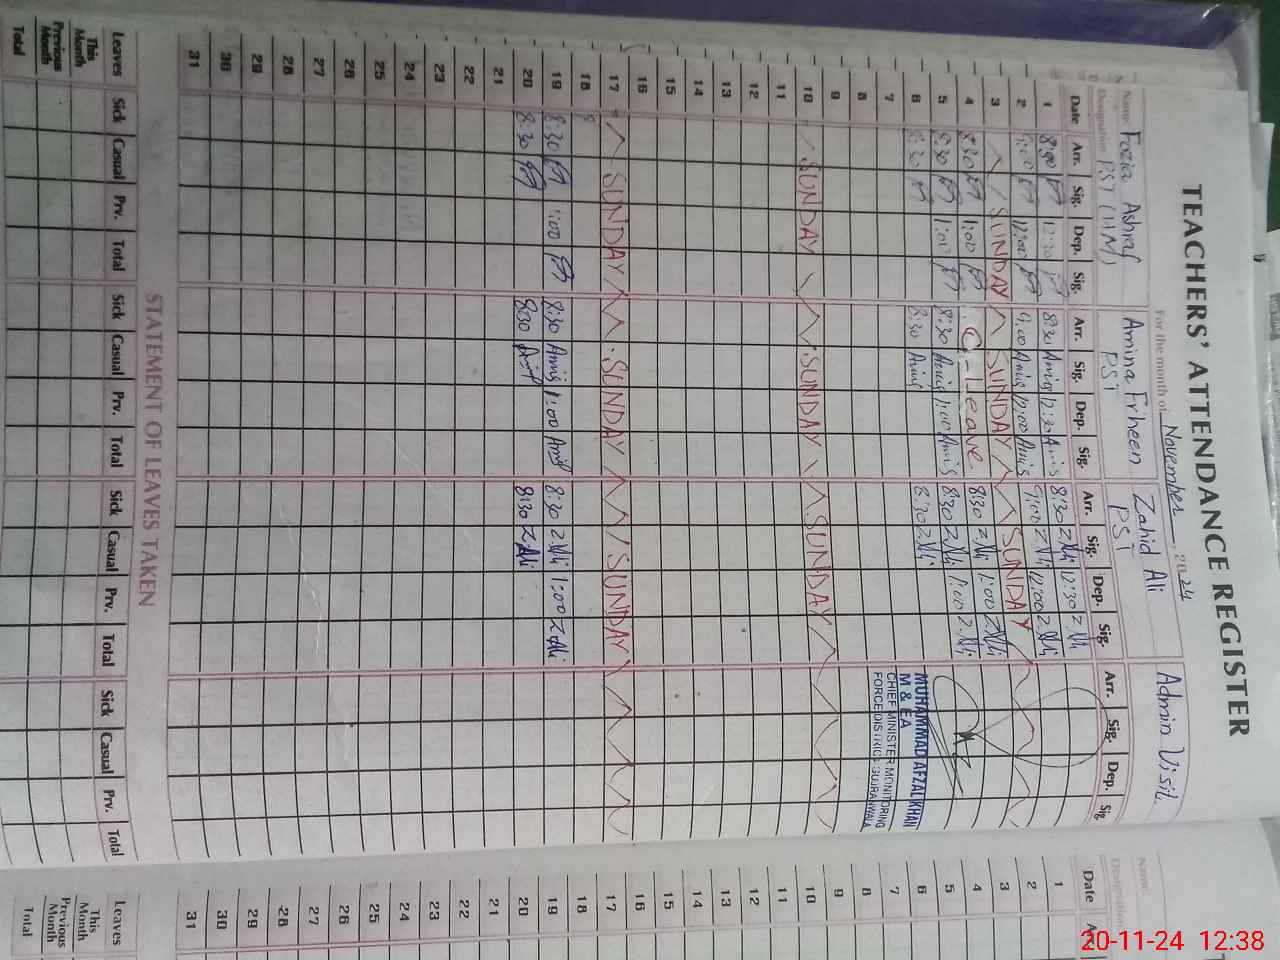 TEACHERS' ATTENDANCE REGISTER
For the month of November, 2024
Name: Fozia Ashraf Amina Firheen Zahid Ali Admin Visit.
Designation PST (HM) PST PST
Date Arr. Sig. Dep. Sig. Arr. Sig. Dep. Sig. Arr. Sig. Dep. Sig. Arr. Sig. Dep. Sig
1 8:30 12:30 8:30 Amis 12:30 Amis 8:30 Z.Ali 12:30 Z.Ali
2 9:00 12:00 9:00 Amis 12:00 Amis 9:00 Z.Ali 12:00 Z.Ali
3 SUNDAY SUNDAY SUNDAY
4 8:30 1:00 C-Leave 8:30 Z.Ali 1:00 Z.Ali
5 8:30 1:00 8:30 Amis 1:00 Amis 8:30 Z.Ali 1:00 Z.Ali
6 8:30 8:30 Amis 8:30 Z.Ali
MUHAMMAD AFZAL KHAN
M & EA
CHIEF MINISTER MONITORING
FORCE DISTRICT GUJRANWALA
7
8
9
10 SUNDAY SUNDAY SUNDAY
11
12
13
14
15
16
17 SUNDAY SUNDAY SUNDAY
18 8
19 8:30 1:00 8:30 Amis 1:00 Amis 8:30 Z.Ali 1:00 Z.Ali
20 8:30 8:30 Amis 8:30 Z.Ali
21
22
23
24
25
26
27
28
29
30
31
STATEMENT OF LEAVES TAKEN
Leaves Sick Casual Prv. Total Sick Casual Prv. Total Sick Casual Prv. Total Sick Casual Prv. Total
This Month
Previous Month
Total
Name:
Designation
Date
1
2
3
4
5
6
7
8
9
10
11
12
13
14
15
16
17
18
19
20
21
22
23
24
25
26
27
28
29
30
31
Leaves
This Month
Previous Month
Total
20-11-24 12:38